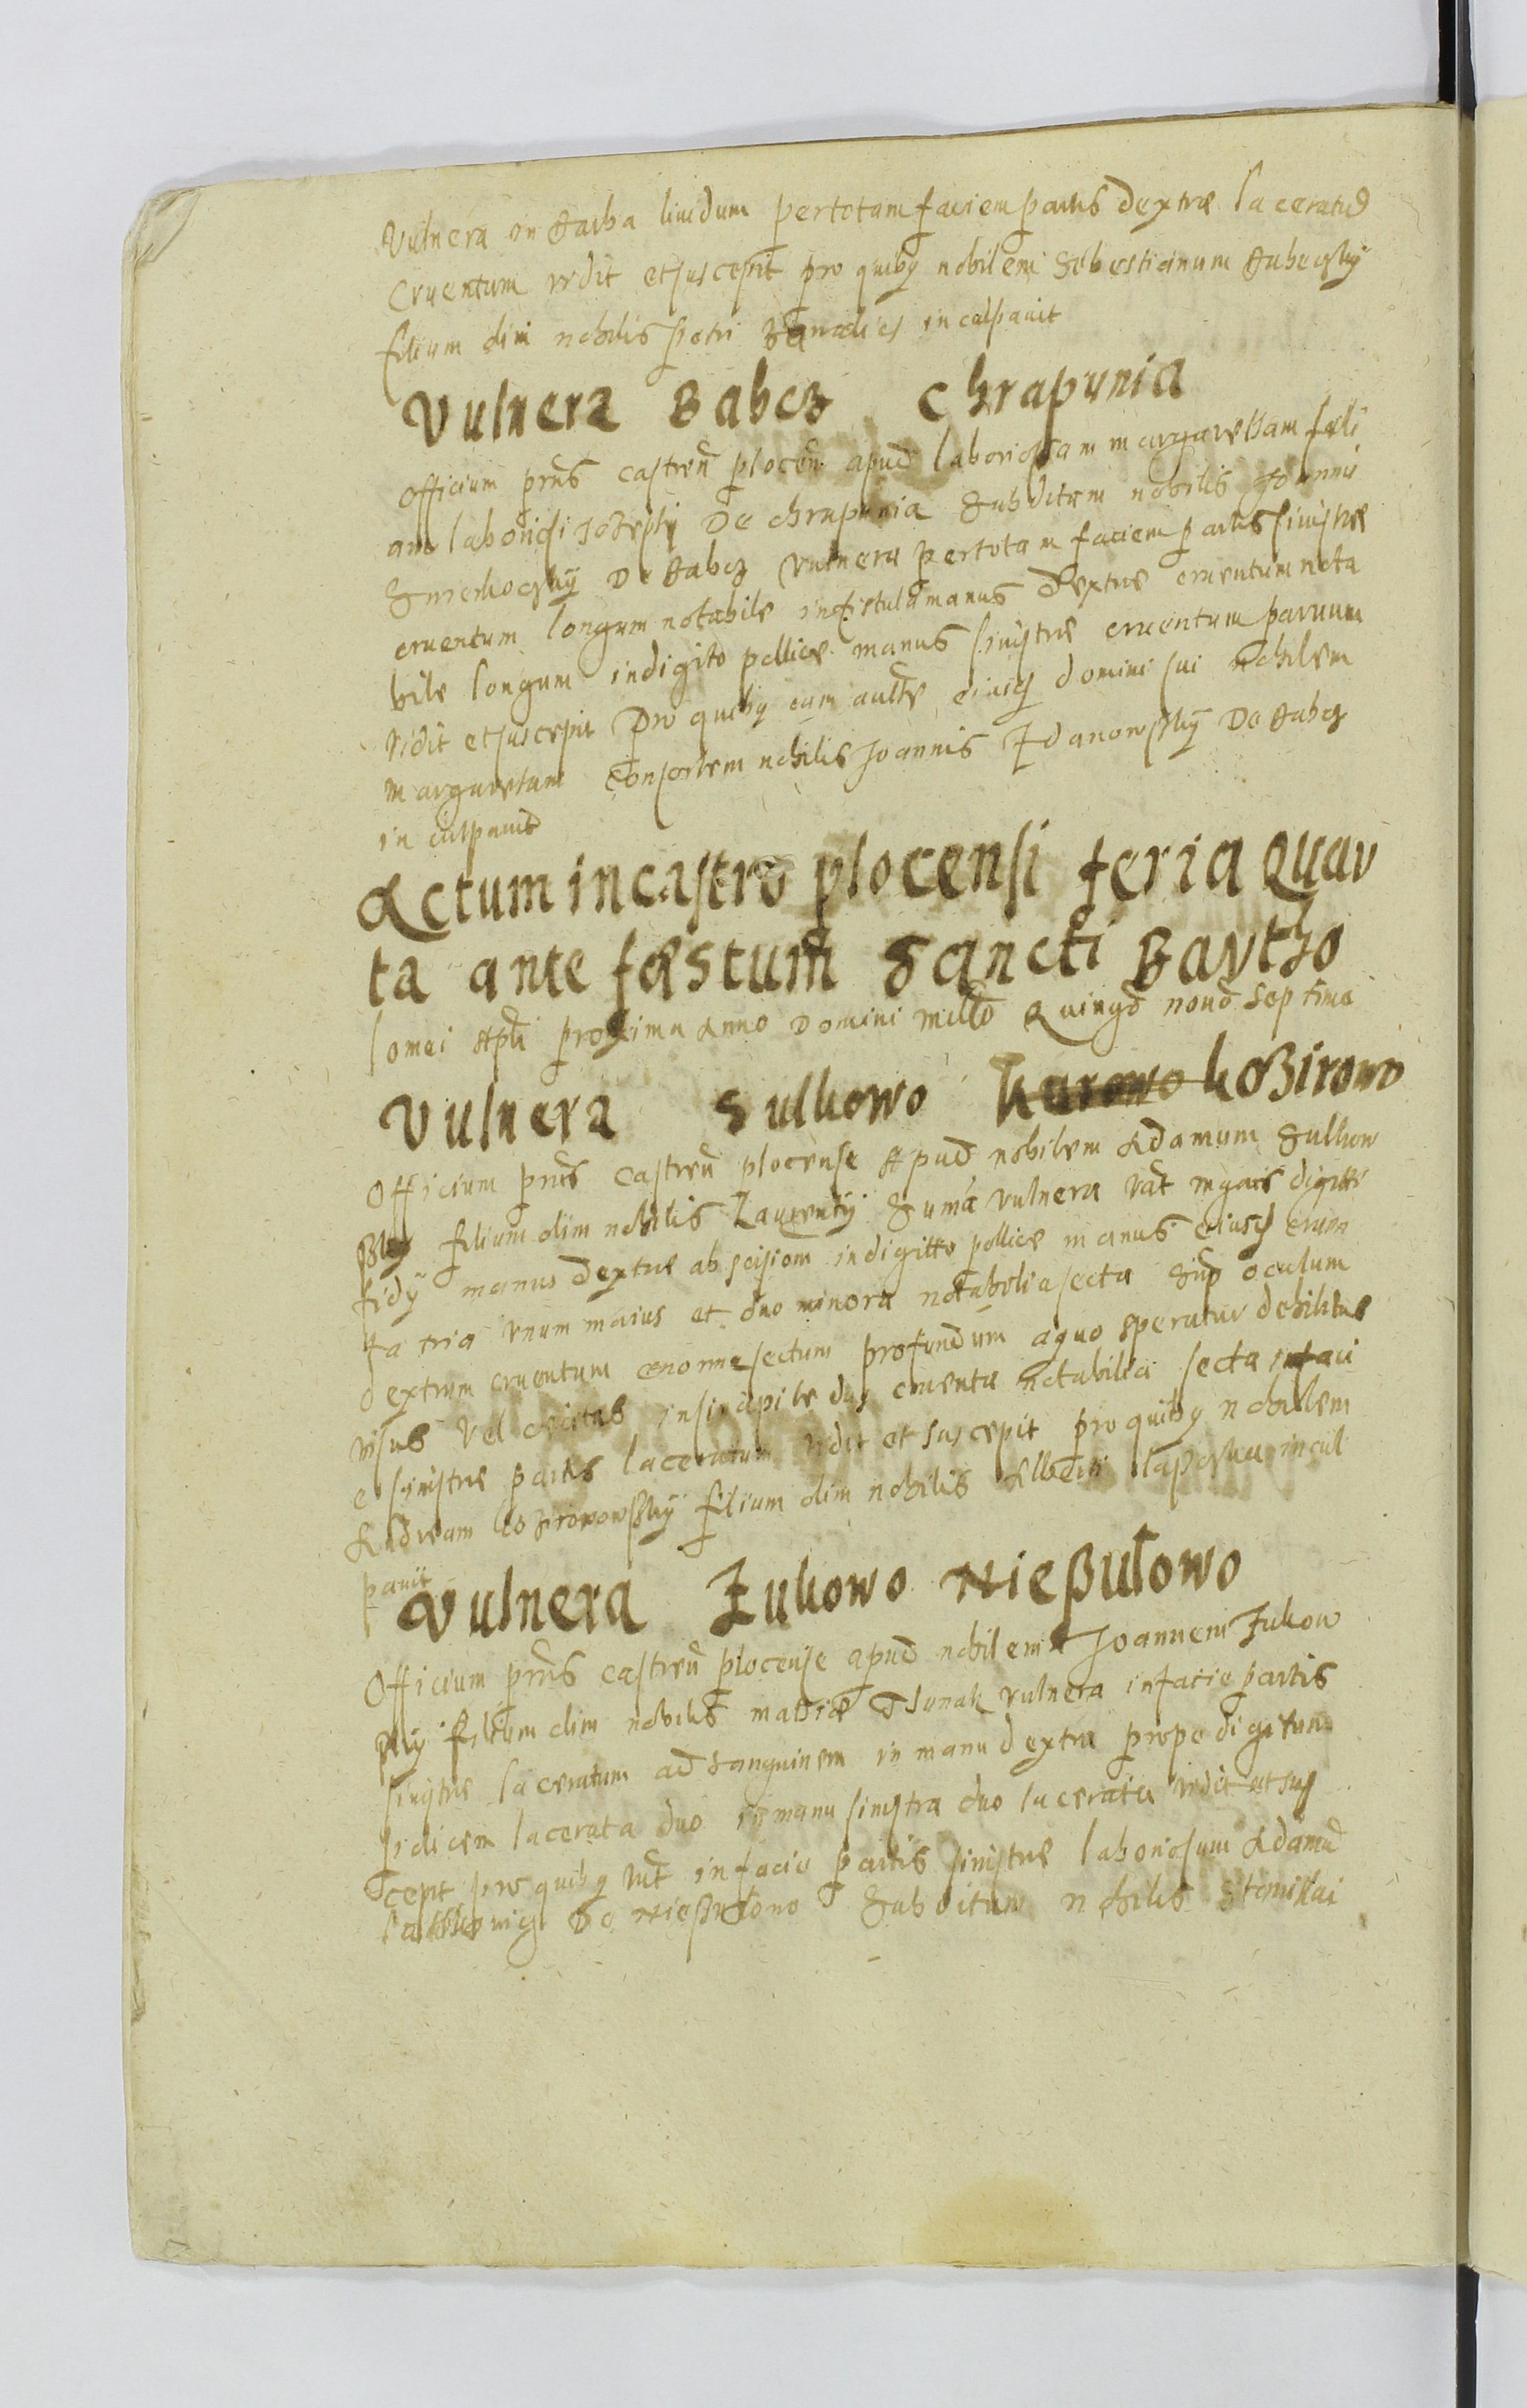 Vulnera in barba liuidum per totam faciem partis dextræ laceratũ
Cruentum vidit et suscepit pro quibꝫ nobilem Sebestianum Babeczky
filium olim nobilis Petri inculpauit
Vulnera Babcz Chrapunia
Officium prñs castreñ plocen apud laboriosam margaretham fili
am laboriosi Josephi De chrapunia Subditam nobilis Joannis
De Babcz vulnera per totam faciem partis sinistræ
cruentum longum notabile in fistula manus dextræ cruentum nota
bile longum in digito pollice manus sinistræ cruentum paruum
vidit et suscepit Pro quibꝫ eum eiusꝫ domini sui nobilem
margaretam Consortem nobilis Joannis Zdanowsky De Babcz
in culpauit
Actum in castro plocensi feria Quar
ta ante fæstum Sancti Bartho
lomei Apli proxima Anno Domini millo Quingo nono Septimo
Vulnera Sulkowo Kurowo koZirowo
Officium prñs castreñ plocense Apud nobilem Adamum Sulkow
sky filium olim nobilis Laurentij Suma vulnera digitti
manus dextræ abscision in digitto pollice manus eiusꝫ cruen
ta tria vnum maius et duo minora notabilia secta Sup oculum
dextrum cruentum enorme sectum profundum a quo speratur debilitas
visus Vel cecitas in sincipite duo cruenta notabilia secta in faci
e sinistræ partis laceratum vidit et suscepit pro quibꝫ nobilem
Andream kozirowowsky filium olim nobilis Alberti incul
pauit
Vulnera Zukowo Nießułowo
Officium prñs castreñ plocense apud nobilem Joannem Zukow
sky filium olim nobilis mathiæ vulnera in facie partis
sinistræ laceratum ad Sanguinem in manu dextra prope digitum
indicem lacerata duo in manu sinistra duo lacerata vidit et sus
cepit pro quibꝫ in facie partis sinistræ laboriosum Adamũ
De Nießułowo Subditum nobilis Stanislai